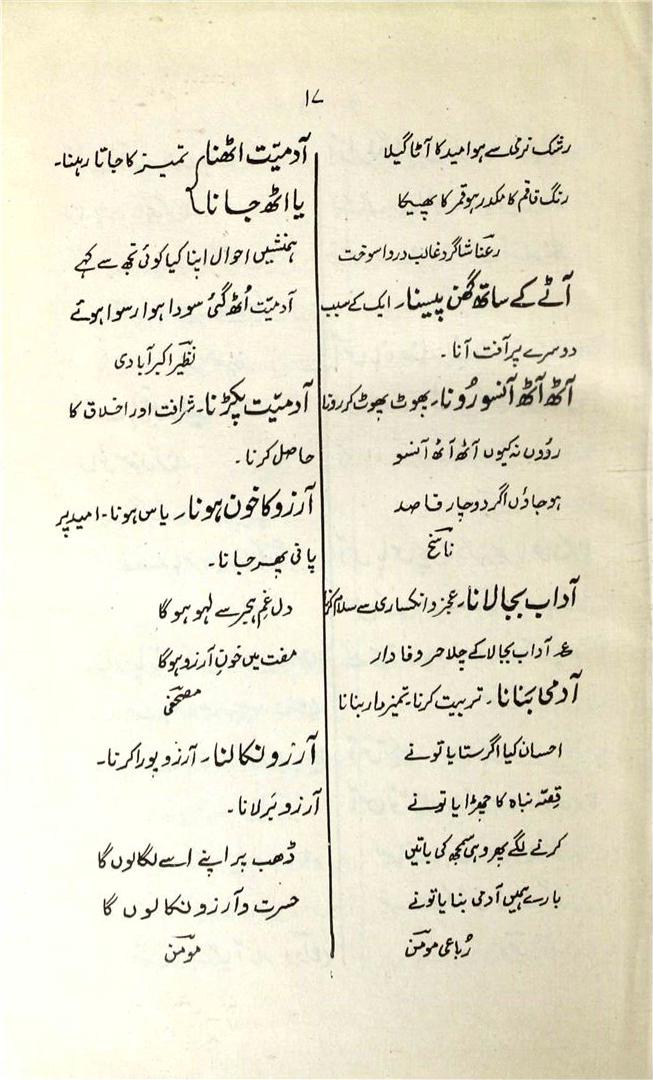 ۱۷
رشک نرمی سے ہوا امید کا آٹا گیلا
رنگ قاقم کا مکدر ہو قمر کا پھیکا
رعنا شاگرد غالب در واسوخت
آٹے کے ساتھ گھن پیسنا۔ ایک کے سبب
دوسرے پر آفت آنا۔
آٹھ آٹھ آنسو رُونا۔ پھوٹ پھوٹ کر رونا
روؤں نہ کیوں آٹھ آٹھ آنسو
ہو جاؤں اگر دوچار قاصد
ناسخ
آداب بجالانا۔ عجز و انکساری سے سلام کرنا
ع آداب بجالا کے چلا حر وفادار
آدمی بَنانا۔ تربیت کرنا۔ تمیزدار بنانا
احسان کیا اگر ستایا تو نے
قِصّہ نباہ کا چھڑایا تو نے
کرنے لگے پھر وہی سمجھ کی باتیں
بارے ہمیں آدمی بنایا تو نے
رُباعی مومن
آدمیّت اٹھنا تمیز کا جاتا رہنا۔
یا اٹھ جانا
ہمنشیں احوال اپنا کیا کوئی تجھ سے کہے
آدمیّت اُٹھ گئی سودا ہوا رسوا ہوئے
نظیر اکبرآبادی
آدمیّت پکڑنا۔ شرافت اور اخلاق کا
حاصل کرنا۔
آرزو کا خون ہونا۔ یاس ہونا۔ امید پر
پانی پھر جانا۔
دل غمِ ہجر سے لہو ہو گا
مفت میں خونِ آرزو ہوگا
مصحفی
آرزو نکالنا۔ آرزو پورا کرنا۔
آرزو بَر لانا۔
ڈھب پر اپنے اسے لگالوں گا
حسرت و آرزو نکالوں گا
مومن